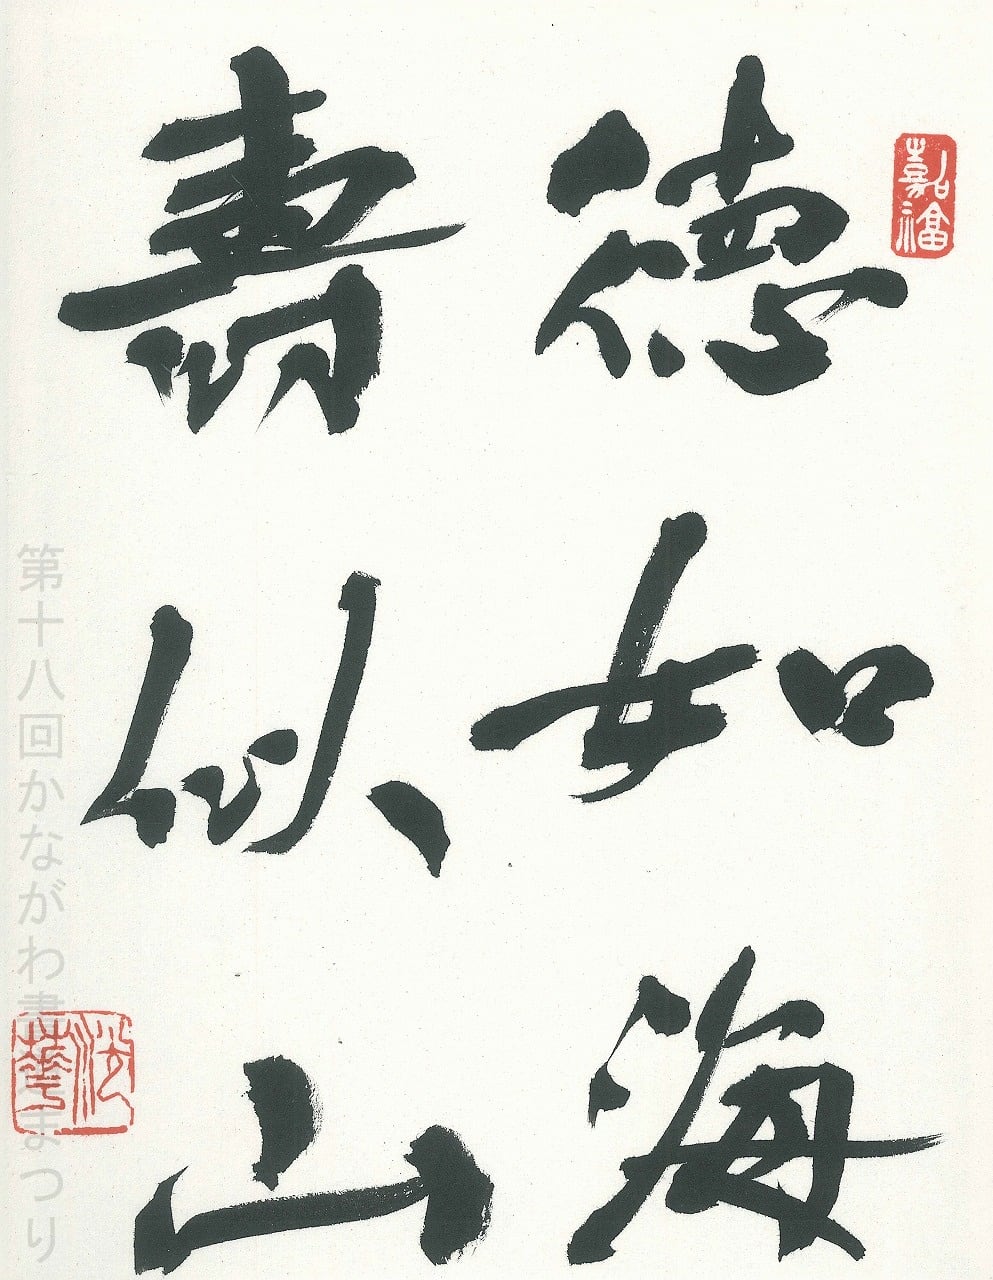 德如海
壽似山
第十八回かながわ書道まつり